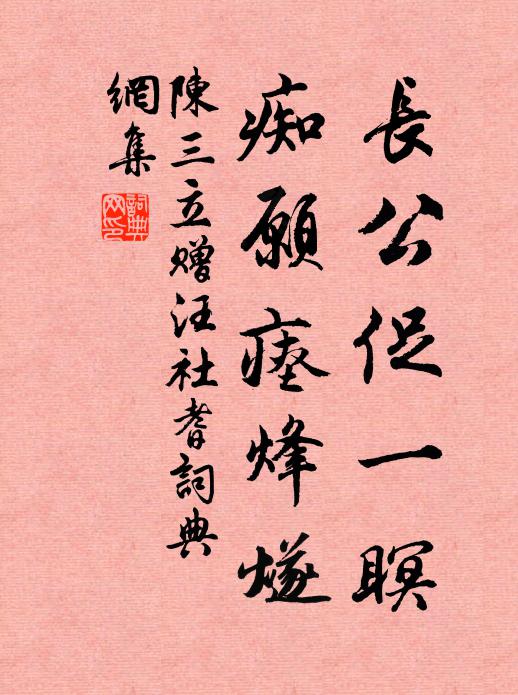 長公促一瞑
痴願瘞烽燧
陳三立贈汪社耆詞典
網集
詞典網印